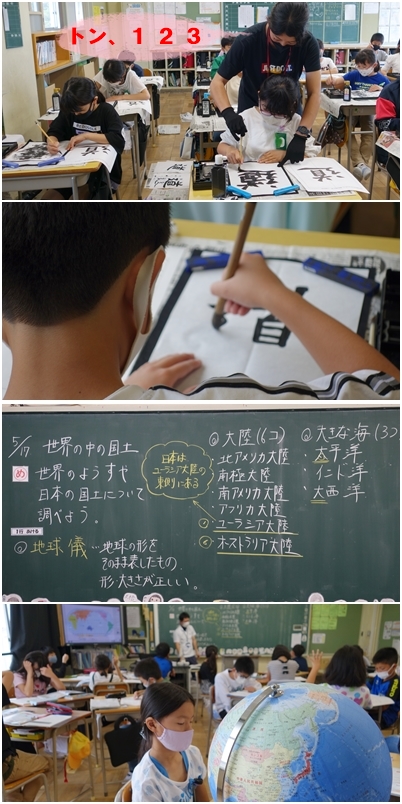 トン、１２３
道
道
5/17 世界の中の国土
め 世界のようすや
日本の国土について
調べよう。
地球儀…地球の形を
そのまま表したもの。
形・大きさが正しい。
日本は
ユーラシア大陸の
東側にある
大陸(6コ)
・北アメリカ大陸
・南極大陸
・南アメリカ大陸
・アフリカ大陸
・ユーラシア大陸
・オーストラリア大陸
大きな海(3コ
・太平洋
・インド洋
・大西洋